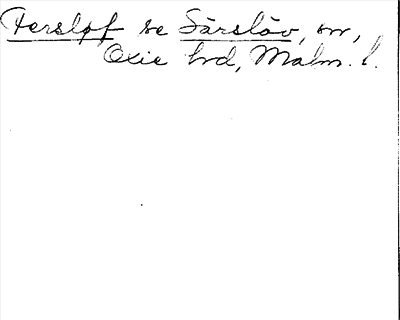 Persløf se Särslöv, sn,
Oxie hrd, Malm. l.